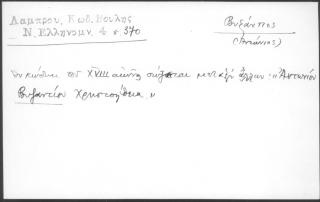 Λαμπρου, Κωδ. Βουλης
Ν. Ελληνομν. 4 σ. 370
Βυζάντιος
(Ἀντώνιος)
Ἐν κώδικι τοῦ XVIII αἰῶνος σώζεται μεταξὺ ἄλλων: "Ἀντωνίου
Βυζαντίου Χρηστοήθεια."